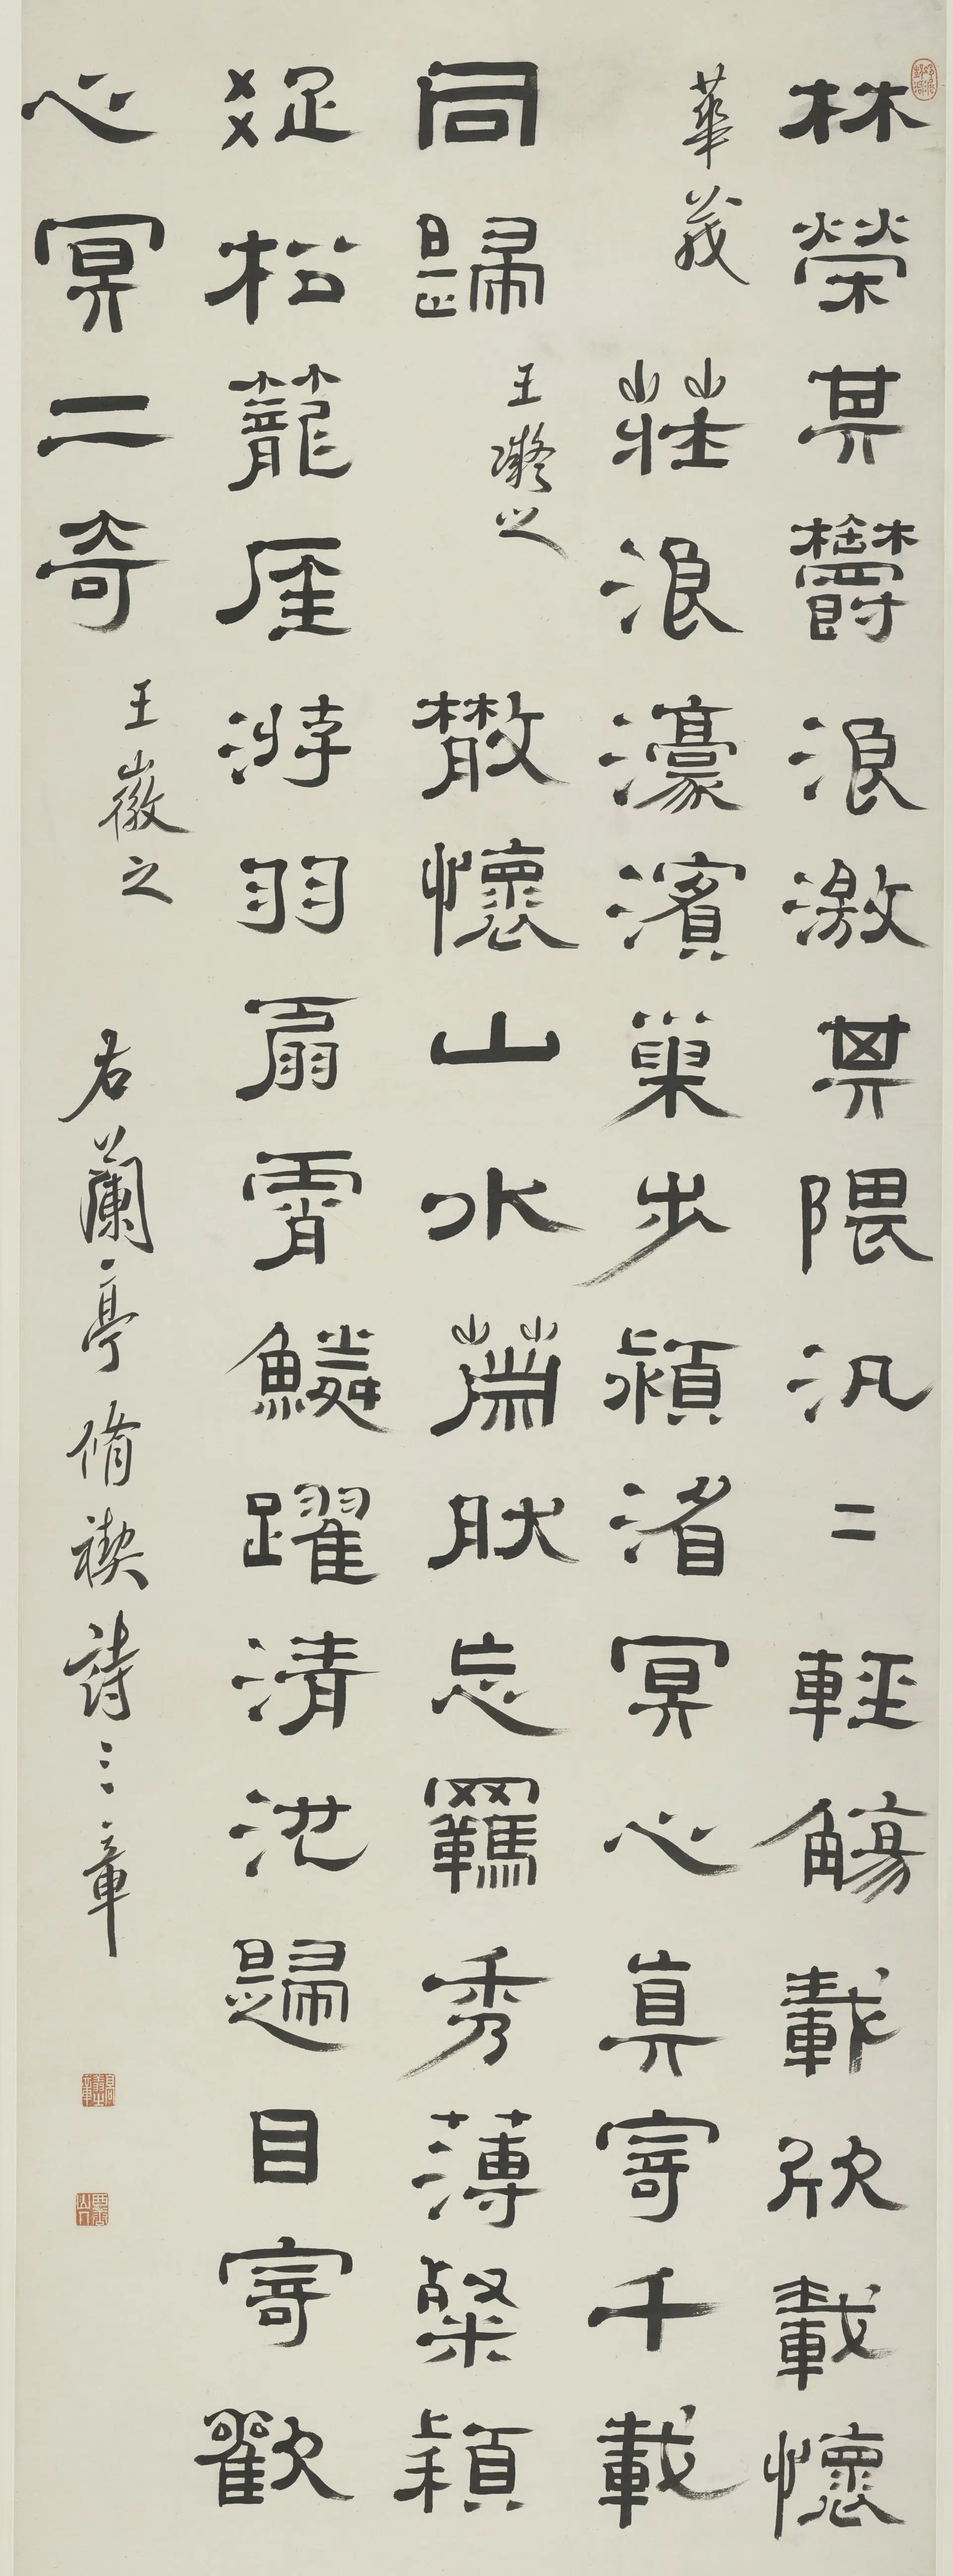 林榮其鬱浪激其隈汎二輕觴載欣載懷
華茂 莊浪濠濱巢步潁渚冥心真寄千載
同歸 王凝之 散懷山水蕭肰忘羈秀薄粲穎
疏松籠崖游羽扇霄鱗躍清池歸目寄歡
心冥二奇 王徽之 右蘭亭脩禊詩三章